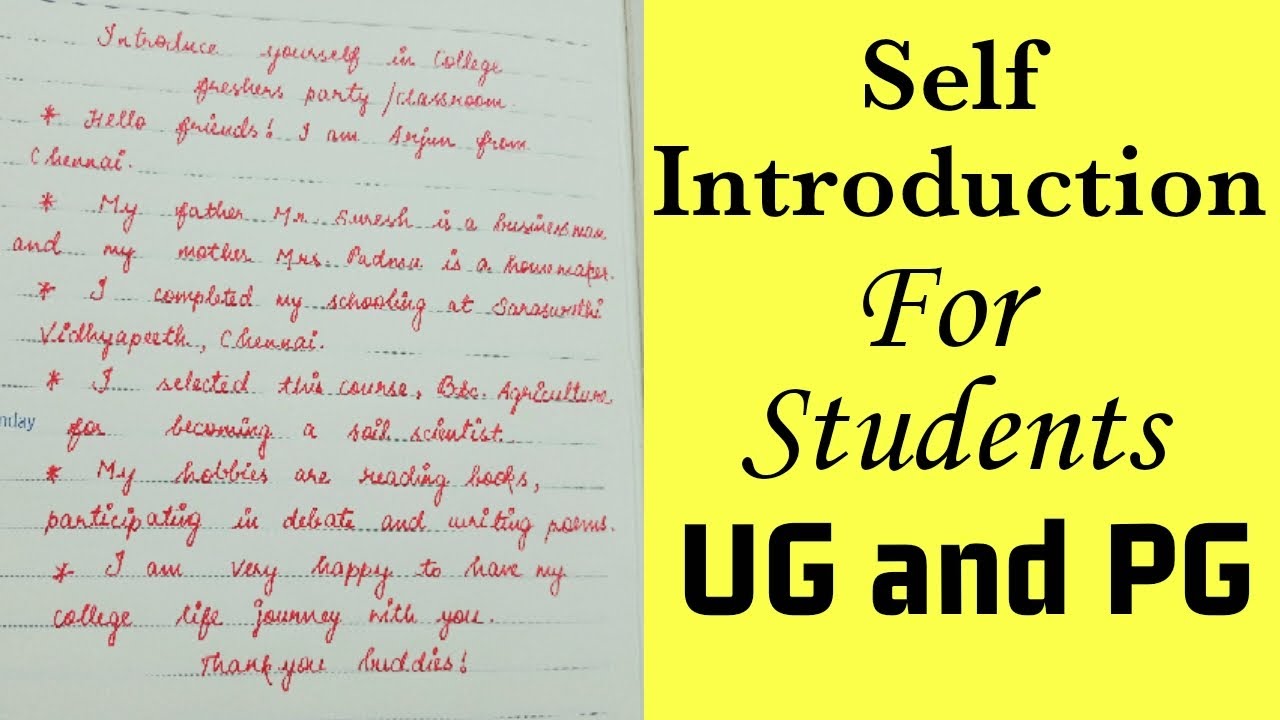 Introduce yourself in College
freshers party /classroom.
* Hello friends! I am Arjun from
Chennai.
* My father Mr. Suresh is a businessman
and my mother Mrs. Padma is a homemaker.
* I completed my schooling at Saraswathi
Vidhyapeeth, Chennai.
* I selected this course, B.Sc. Agriculture
nday
for becoming a soil scientist.
* My hobbies are reading books,
participating in debate and writing poems.
* I am very happy to have my
college life journey with you.
Thank you buddies!
Self
Introduction
For
Students
UG and PG